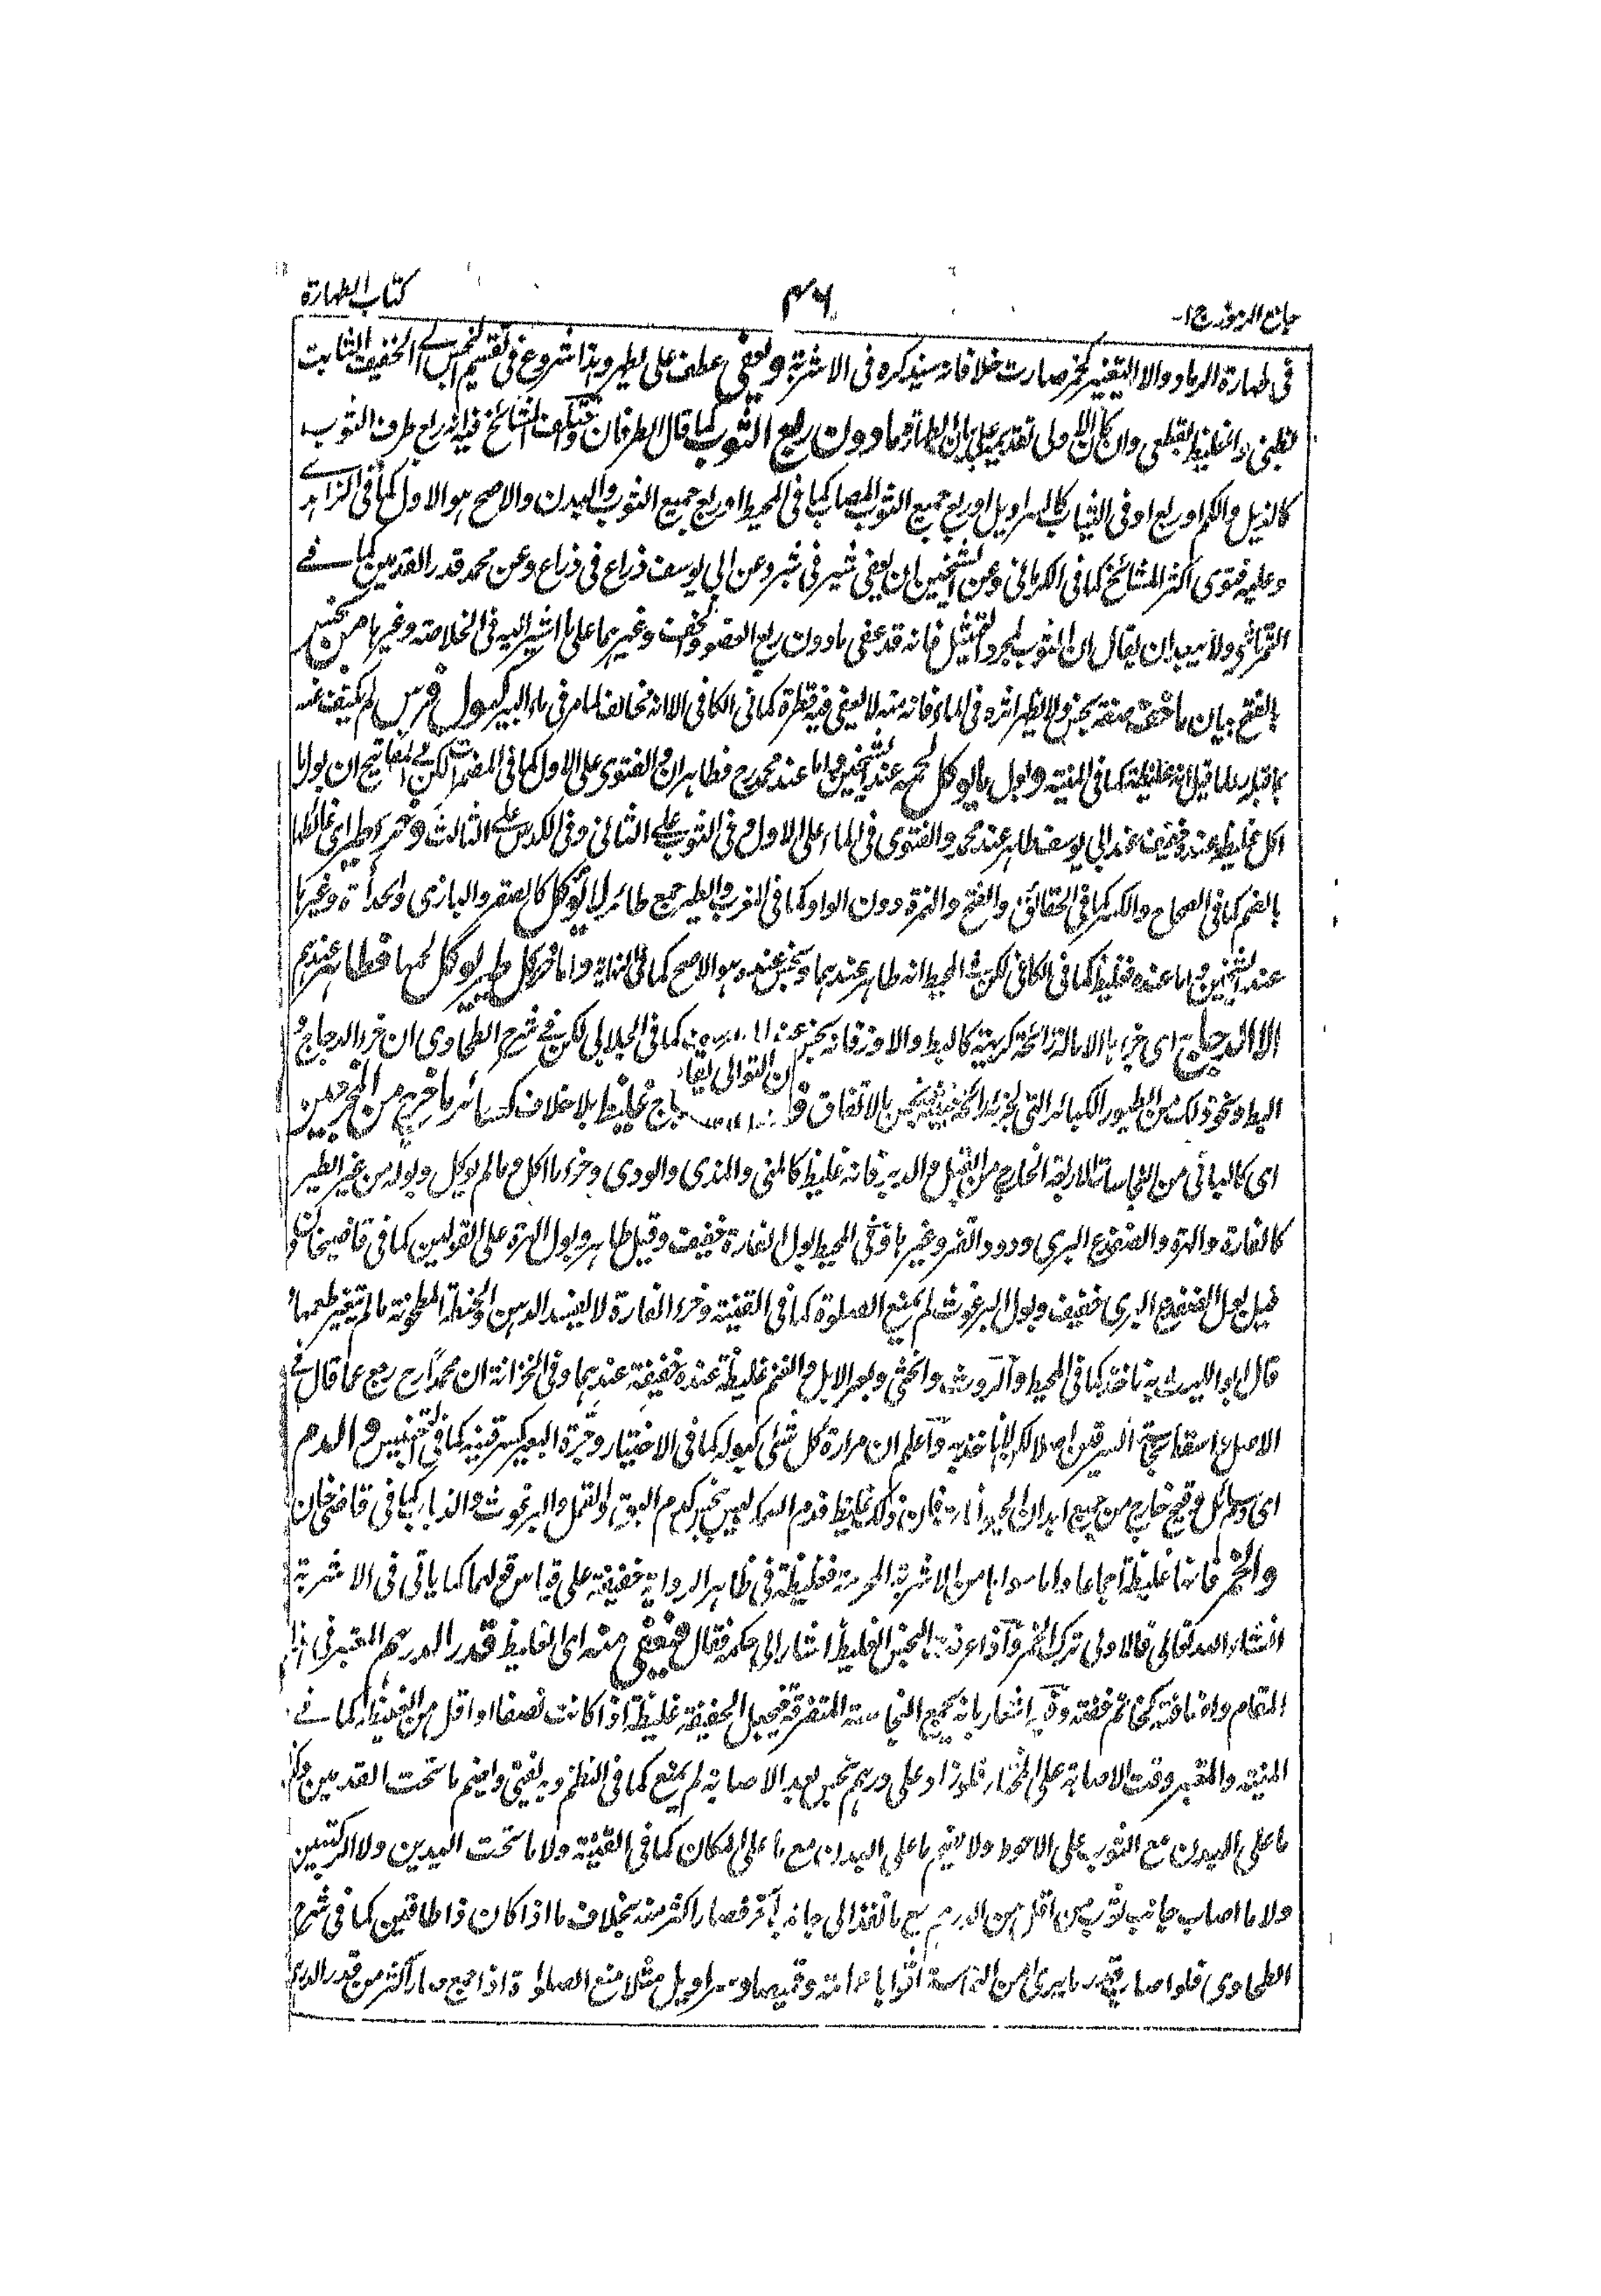 جامع الرموز ج ا-
۴۶
كتاب الطهارة
فى طهارة الرماد والا التغير كخمر صارت خلا فانه سيذكره فى الاشربة ويعفى عطف على يطهر وهذا شروع فى تقسيم النجس الے الخفيف الثابت
بظنى والغليظ بقطعى وان كان الاولى تقديمه على بيان الطهارة مادون ربع الثوب كما قال الطرفان واختلف المشائخ فيه انه ربع طرف الثوب
كالذيل والكم او ربع ادنى الثياب كالسراويل او ربع جميع الثوب المصاب كما فى المحيط او ربع جميع الثوب والبدن والاصح هو الاول كما فى الزاهدے
وعليه فتوى اكثر المشائخ كما فى الكرمانى وعن الشيخين ان يعفى شبر فى شبر وعن ابى يوسف ذراع فى ذراع وعن محمد قدر القدمين كما فے
التمرتاشى ولا يبعد ان يقال ان الثوب لمجرد التمثيل فانه قد عفى مادون ربع العضو والخف وغيرهما على ما اشير اليه فى الخلاصة وغيرها من نجس
بالفتح بيان ما خف صفة نجس ولا يظهر اثره فى الماء فانه منه لا يعفى فيه قطرة كما فى الكافى الا انه مخالف لما مر فى ماء البير كبول فرس لم يكتف عنه
بما قيل انه غليظة كما فى المنية وبول ما يوكل لحمه عند الشيخين واما عند محمد رح فطاهران والفتوى على الاول كما فى المضمرات لكن فے المفاتيح ان بول ما
اكل غليظ عنده خفيف عند ابى يوسف طاهر عند محمد والفتوى فى الماء على الاول و فى الثوب علے الثانى وفى الكدس علے الثالث وخرء طير اى غائطها
بالضم كما فى الصحاح والكسر كما فى الحقائق والفتح والهمزة دون الواو كما فى المغرب والطير جمع طائر لا يؤكل كالصقر والبازى والحدأة وغيرها
عند الشيخين واما عنده فغليظ كما فى الكافى لكن فى المحيط انه طاهر عندهما ونجس عنده وهو الاصح كما فى النهاية واما خرء كل طير يوكل لحمها فطاهر عندهم
الا الدجاج اى خرء ما لا ماله رائحة كريهة كالبط والاوز فانه نجس كما فى الجلالى لكن فے شرح الطحاوى ان خرء الدجاج و
البط ونحو ذلك من الطيور الكبائر التى لخرئه رائحة خبيثة نجس بالاتفاق غليظ بلا خلاف كسائر ما خرج من المخرجين
اى كالباقى من النجاسات الاربعة الخارج من القبل والدبر فانه غليظ كالمنى والمذى والودى وخرء ما اكل وما لم يوكل وبوله من غير الطير
كالفارة والهرة والضفدع البرى ودود القز وغيرها وفى المحيط بول الفارة خفيف وقيل طاهر وبول الهرة على القولين كما فى قاضيخان و
قيل بول الضفدع البرى خفيف وبول البرغوث لم يمنع الصلوة كما فى القنية وخرء الفارة لا يفسد الدهن والحنطة المطحونة مالم يتغير طعمها
قال ابو الليث به ناخذ كما فى المحيط والروث والخثى وبعر الابل والغنم غليظة عنده خفيفة عندهما وفى الخزانة ان محمدا رح رجع عما قال فے
الاصل كل لا ناخذ به واعلم ان مرارة كل شئى كبوله كما فى الاختيار وجرة البعير كسرقينه كما فى التجنيس والدم
اى وسائل وقيح خارج من جميع ابدان الحيوانات فان ذلك غليظ فدم السمك ليس بنجس كدم البق والقمل والبرغوث والذباب كما فى قاضى خان
والخمر فانها غليظة اجماعا واما سواها من الاشربة المحرمة فغليظة فى ظاهر الرواية خفيفة على قياس قولهما كما ياتى فى الاشربة
انشاء الله تعالى فالاولى ترك الخمر النجس الغليظ اشار الى حكمه فقال فيعفى منه اى الغليظ قدر الدرهم المعتبر فى هذا
المقام والاضافة كخاتم فضة وفيه اشعار بانه يجمع النجاسة المتفرقة فيجعل الخفيفة غليظة اذا كانت نصفا او اقل من الغليظة كما فے
المنية والمعتبر وقت الاصابة على المختار فلو زاد على درهم نجس بعد الاصابة لم يمنع كما فى النظم وبه يفتى وايضم ما تحت القدمين و
ما على البدن مع الثوب على الاحوط ولا يضم ما على البدن مع ما على المكان كما فى القنية ولا ما تحت اليدين ولا الركبتين
ولا ما اصاب جانب ثوب من اقل من الدرهم مع ما نفذ الى جانب آخر فصار اكثر منه بخلاف ما اذا كان ذا طاقين كما فى شرح
الطحاوى فلو اصاب ما يرى من النجاسة اثوابا عمامته وقميصه وسراويل مثلا منع الصلوة اذا جمع صار اكثر من قدر الدرهم